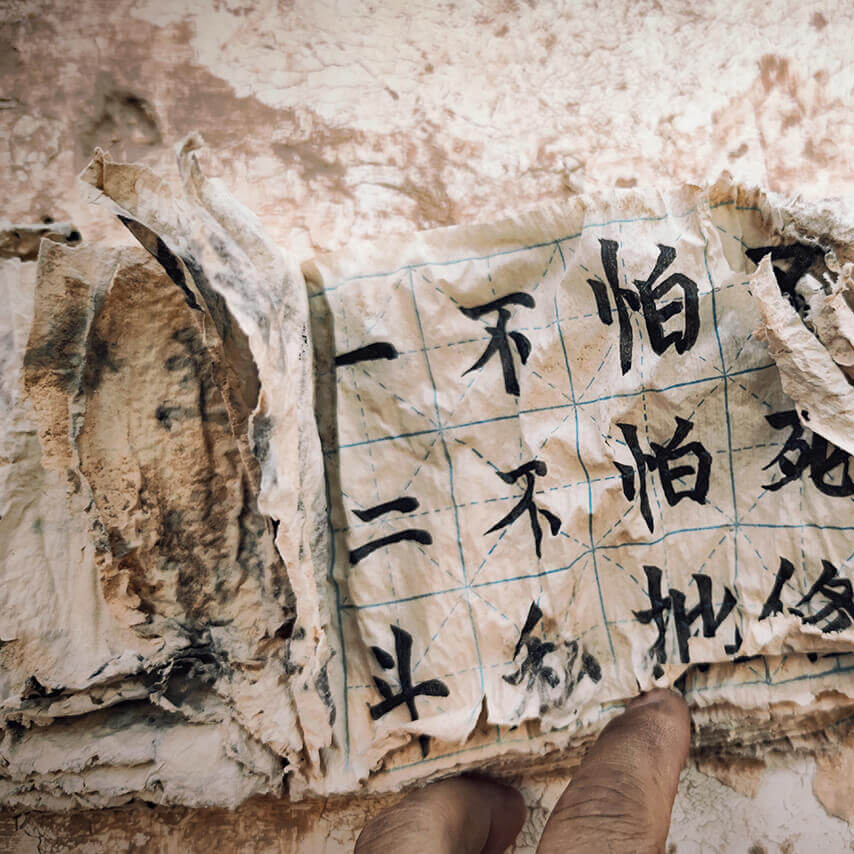 一不怕
二不怕死
斗私批修